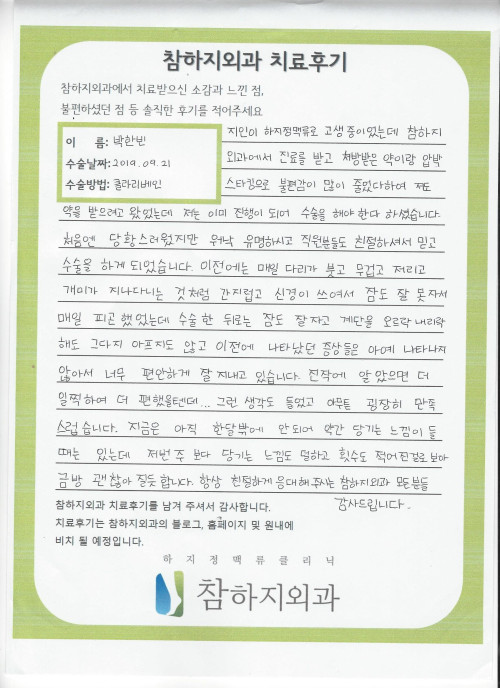 참하지외과 치료후기
참하지외과에서 치료받으신 소감과 느낀 점,
불편하셨던 점 등 솔직한 후기를 적어주세요
이 름: 박한빈
수술날짜: 2019. 09. 21
수술방법: 클라리베인
지인이 하지정맥류로 고생 중이었는데 참하지
외과에서 진료를 받고 처방받은 약이랑 압박
스타킹으로 불편감이 많이 줄었다하여 저도
약을 받으려고 왔었는데 저는 이미 진행이 되어 수술을 해야 한다 하셨습니다.
처음엔 당황스러웠지만 워낙 유명하시고 직원분들도 친절하셔서 믿고
수술을 하게 되었습니다. 이전에는 매일 다리가 붓고 무겁고 저리고
개미가 지나다니는 것처럼 간지럽고 신경이 쓰여서 잠도 잘 못자서
매일 피곤했었는데 수술 한 뒤로는 잠도 잘 자고 계단을 오르락 내리락
해도 그다지 아프지도 않고 이전에 나타났던 증상들은 아예 나타나지
않아서 너무 편안하게 잘 지내고 있습니다. 진작에 알았으면 더
일찍하여 더 편했을텐데... 그런 생각도 들었고 아무튼 굉장히 만족
스럽습니다. 지금은 아직 한달밖에 안되어 약간 당기는 느낌이 들
때는 있는데 저번주 보다 당기는 느낌도 덜하고 횟수도 적어진걸로 보아
금방 괜찮아 질듯 합니다. 항상 친절하게 응대해 주시는 참하지외과 모든분들
감사드립니다.
참하지외과 치료후기를 남겨 주셔서 감사합니다.
치료후기는 참하지외과의 블로그, 홈페이지 및 원내에
비치 될 예정입니다.
하지정맥류클리닉
참하지외과